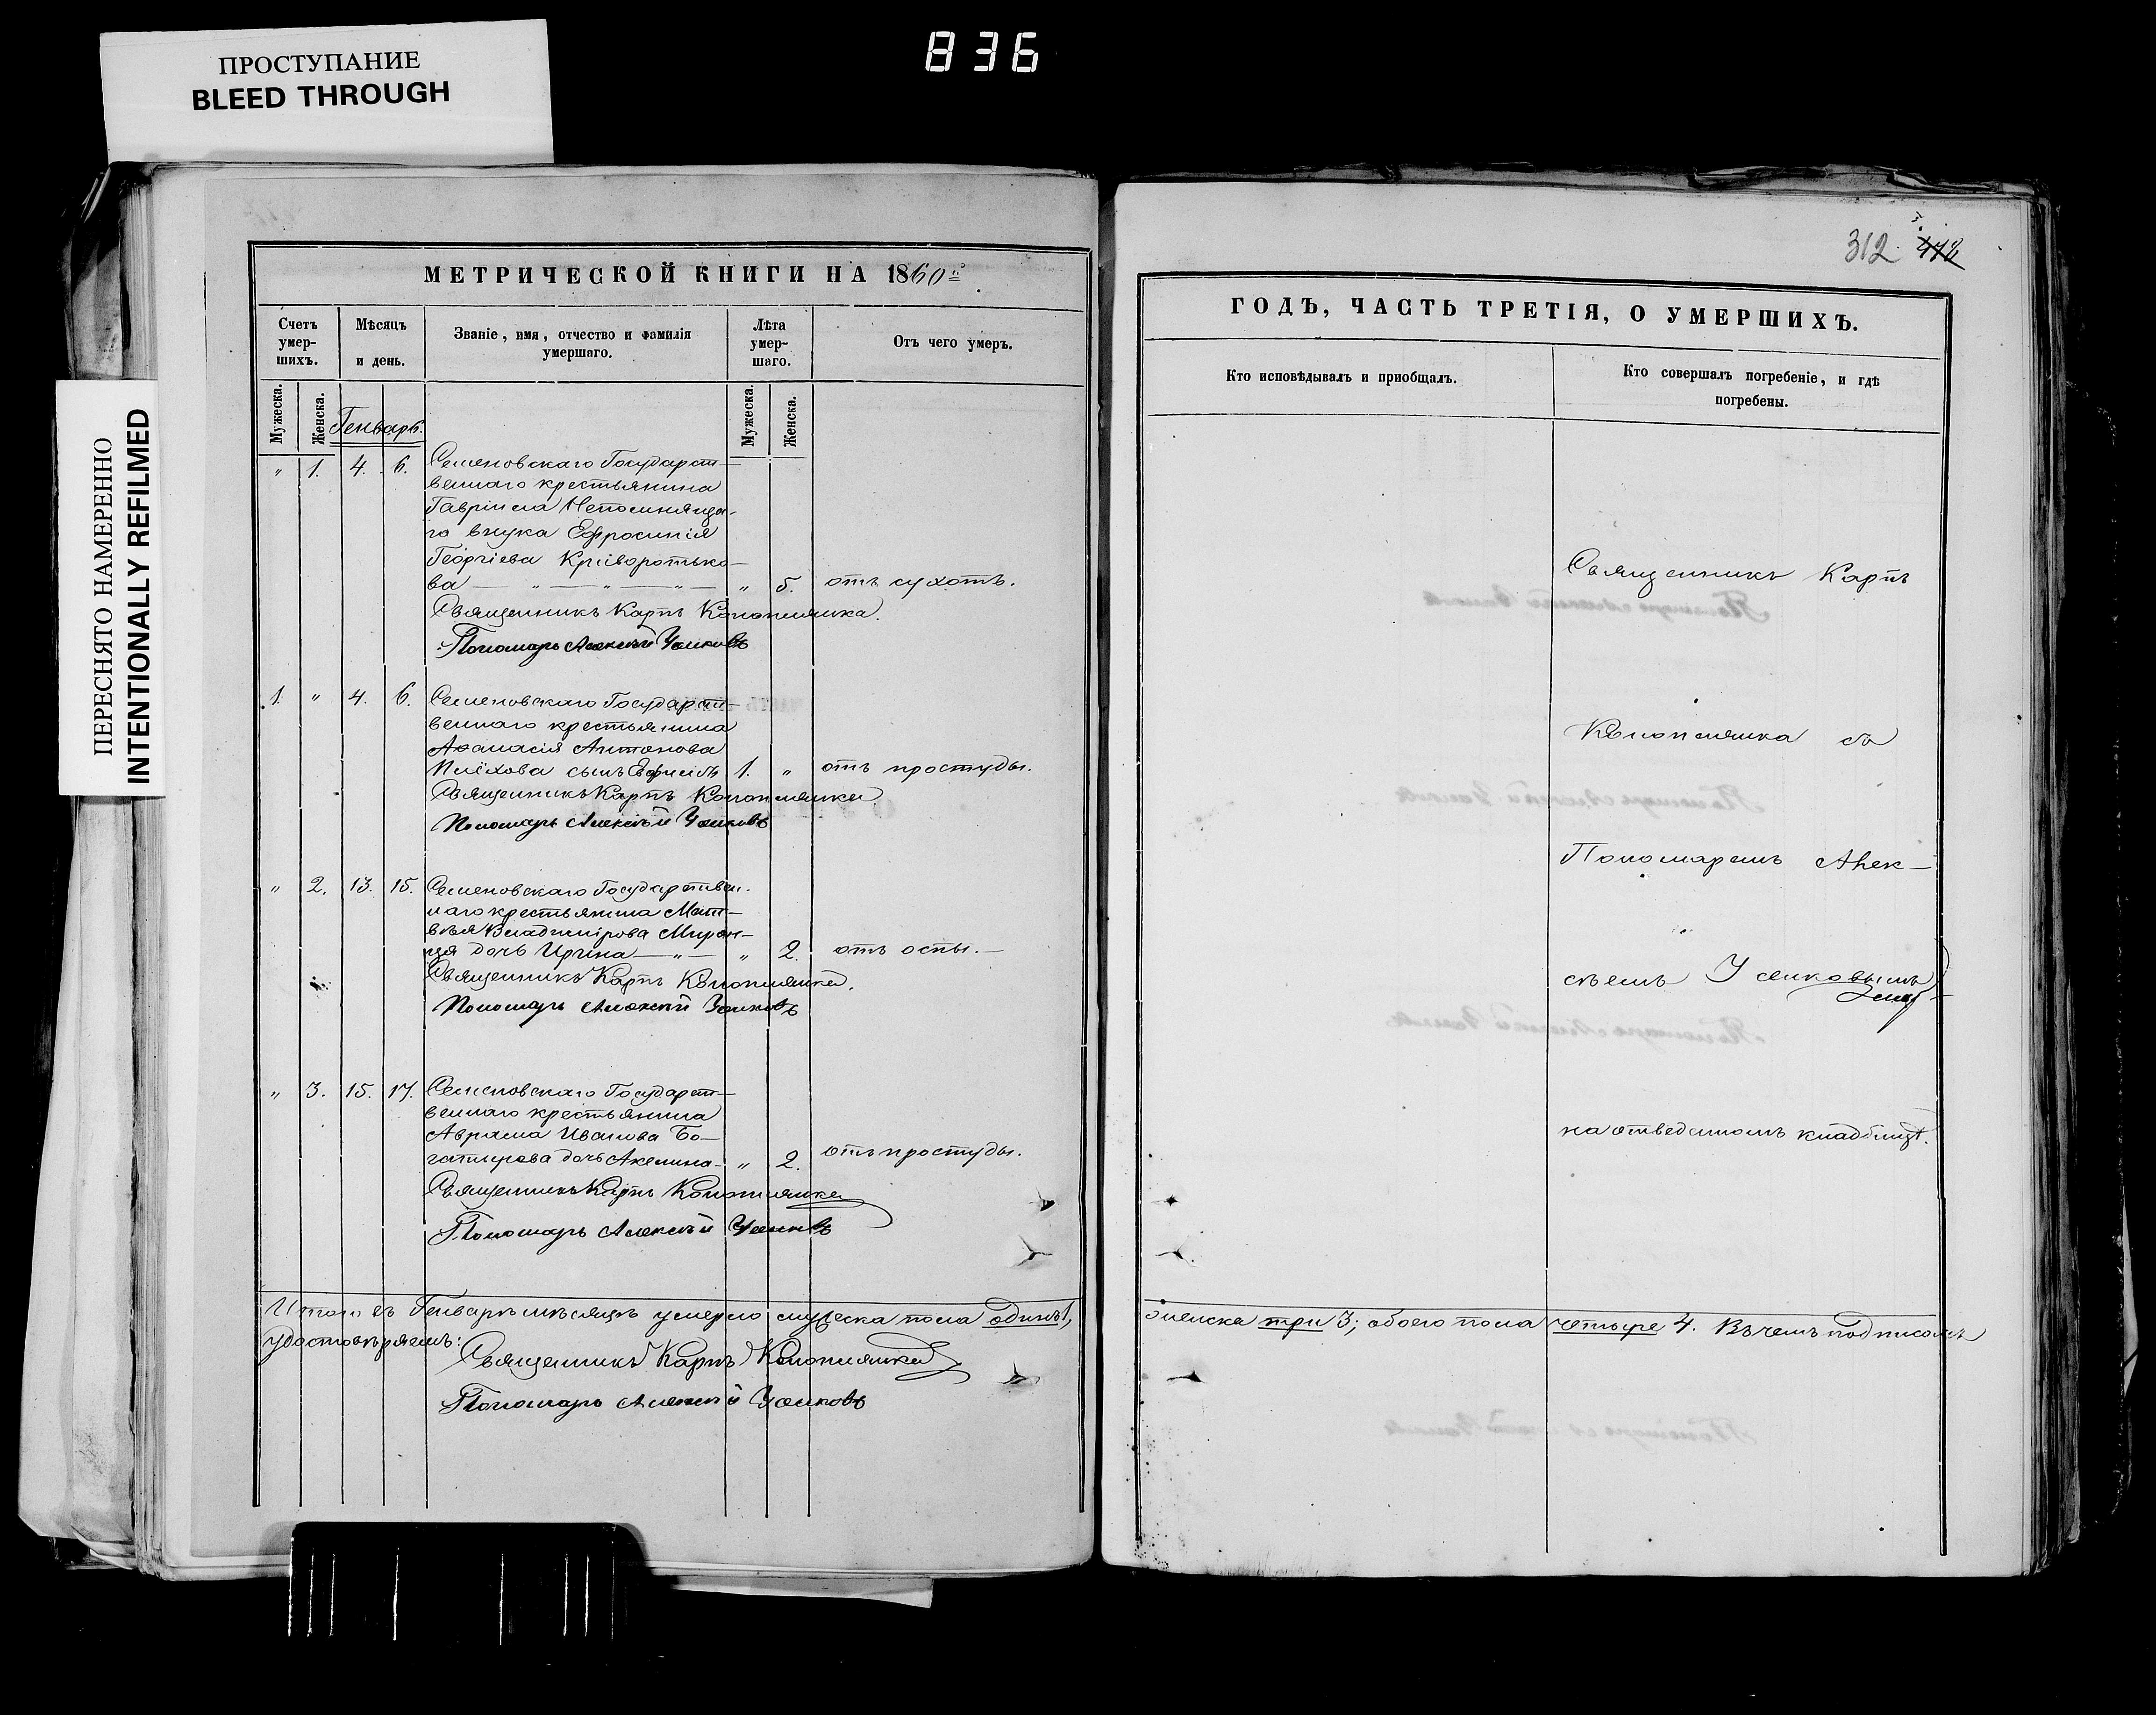 836
ПРОСТУПАНИЕ
BLEED THROUGH
ПЕРЕСНЯТО НАМЕРЕННО
INTENTIONALLY REFILMED
МЕТРИЧЕСКОЙ КНИГИ НА 1860й
Счетъ умер-шихъ.
Мѣсяцъ и день.
Званіе, имя, отчество и фамилія умершаго.
Лѣта умер-шаго.
Отъ чего умеръ.
Мужеска.
Женска.
Генварь.
Мужеска.
Женска.
" 1. 4. 6. Семеновскаго Государст-
веннаго крестьянина
Гавріила Непомняща-
го внука Ефросинія
Геѡргіева Криворотько-
ва — " — " — " — " 5. отъ сухотъ.
Священникъ Карпъ Конопляшка.
Пономарь Алексѣй Усиковъ
1. " 4. 6. Семеновскаго Государст-
веннаго крестьянина
Аѳанасія Антонова
Плёхова сынъ Ефимъ 1. " отъ простуды.
Священникъ Карпъ Конопляшка
Пономарь Алексѣй Усиковъ
" 2. 13. 15. Семеновскаго Государствен-
наго крестьянина Мат-
вѣя Владимірова Мирон-
ця дочь Ирина — " — " 2. отъ оспы. —
Священникъ Карпъ Конопляшка.
Пономарь Алексѣй Усиковъ
" 3. 15. 17. Семеновскаго Государст-
веннаго крестьянина
Аврама Иванова Бо-
гатырева дочь Акелина - " 2. отъ простуды.
Священникъ Карпъ Конопляшка
Пономарь Алексѣй Усиковъ
Итого въ Генварѣ мѣсяцѣ умерло мужеска пола одинъ 1,
удостовѣряемъ:
Священникъ Карпъ Конопляшка
Пономарь Алексѣй Усиковъ
312.
ГОДЪ, ЧАСТЬ ТРЕТІЯ, О УМЕРШИХЪ.
Кто исповѣдывалъ и пріобщалъ.
Кто совершалъ погребеніе, и гдѣ
погребены.
Священникъ Карпъ
Конопляшка съ
Пономаремъ Алек-
сѣемъ Усиковымъ
на отведенномъ кладбищѣ.
женска три 3; обоего пола четыре 4. Въ чемъ подписомъ